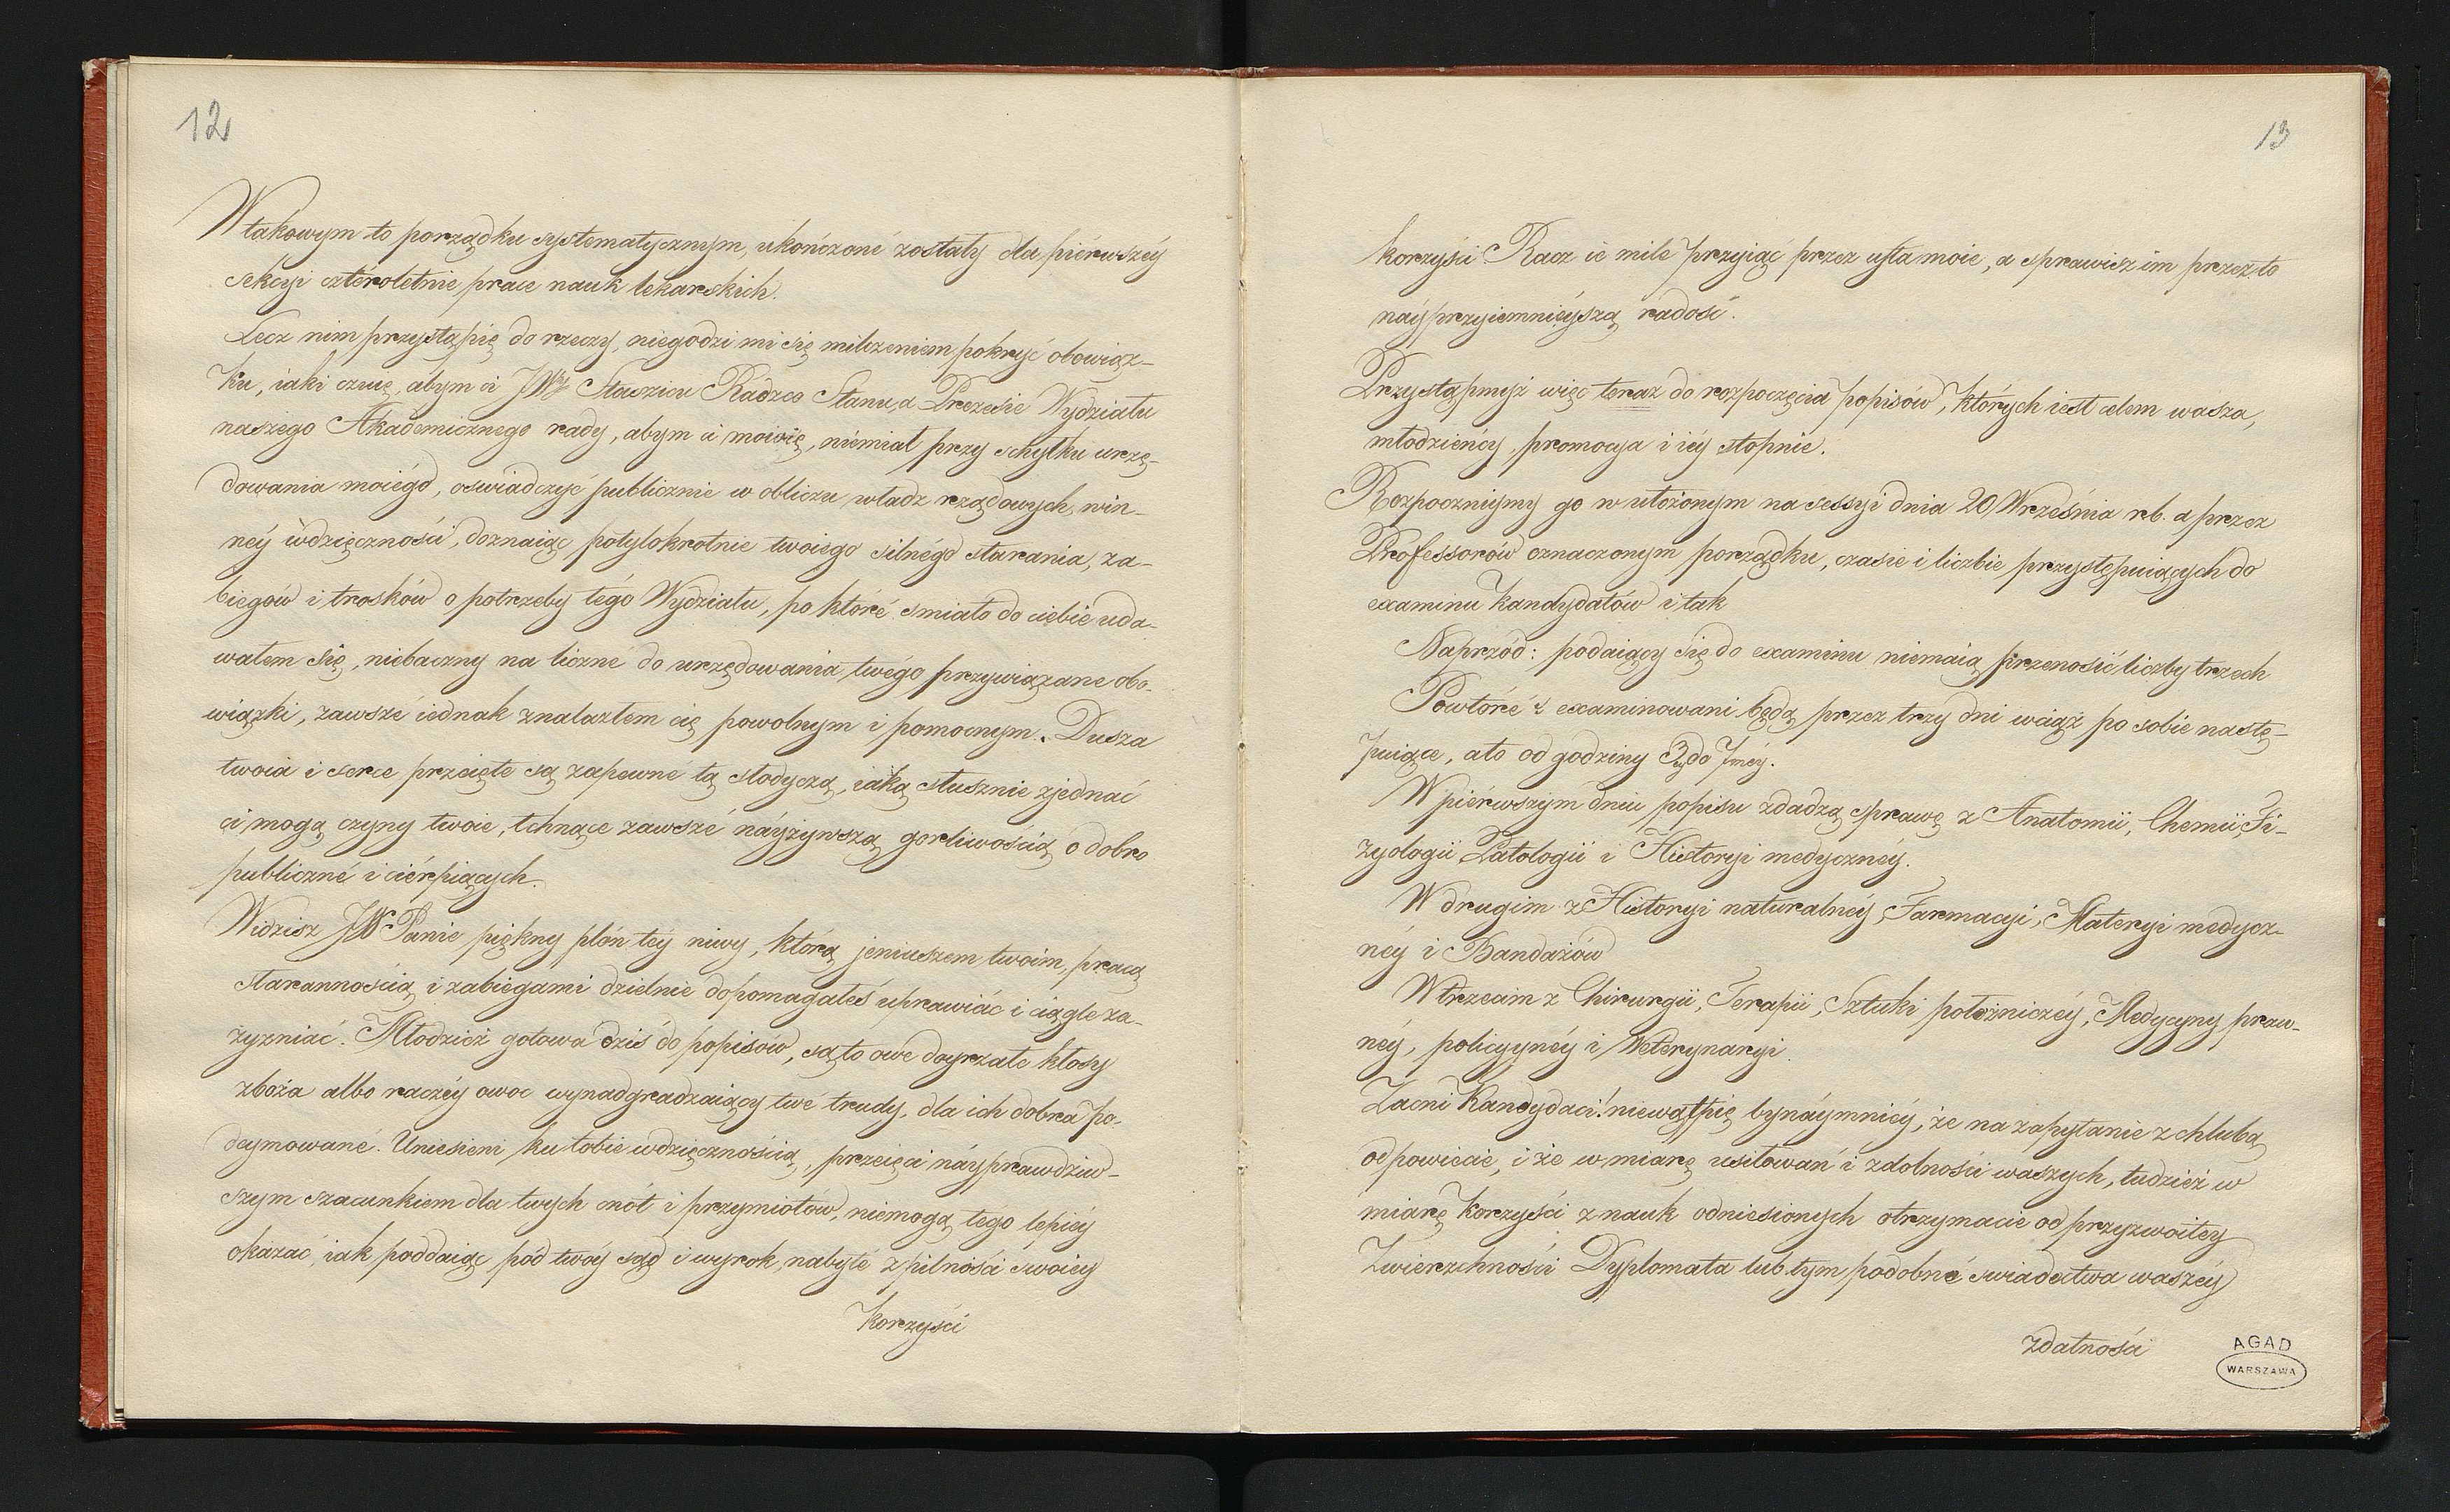 12
W takowym to porządku systematycznym, ukończoné zostały dla piérwszéy
sekcyi czteroletnie prace nauk lekarskich.
Lecz nim przystąpię do rzeczy, niegodzi mi się milczeniem pokryć obowiąz-
ku, iaki czuię, abym ci JWny Staszicu Radzco Stanu, a Prezesie Wydziału
naszego Akademicznego rady, abym ci mówię, niémiał przy schyłku urzę-
dowania moiégo, oswiadczyć publicznie w obliczu władz rządowych, win-
néy wdzięczności, doznaiąc potylokrotnie twoiego silnégo starania, za-
biegów i trosków o potrzeby tégo Wydziału, po któré smiało do ciebie uda-
wałem się, niebaczny na liczné do urzędowania twégo przywiązane obo-
wiązki, zawszé iednak znalazłem cię powolnym i pomocnym. Dusza
twoia i serce przeięte są zapewné tą słodyczą, iaką słusznie zjednać
ci mogą czyny twoie, tchnące zawszé náyżywszą gorliwością o dobro
publiczné i ciérpiących.
Widzisz JW Panie piękny plon téy niwy, którą jeniuszem twoim, pracą
starannością i zabiegami dzielnie dopomagałeś uprawiać i ciągle za-
żyzniać. Młodzież gotowa dziś do popisów, są to owe doyrzałe kłosy
zboża albo raczéy owoc wynadgradzaiący twé trudy, dla ich dobra po-
deymowané. Uniesieni ku tobie wdzięcznością, przeięci náyprawdziw-
szym szacunkiem dla twych cnót i przymiotów, niemogą tego lepiéy
okazać, iak poddaiąc pód twóy sąd i wyrok, nabyté z pilności swoiéy
korzyści
13
korzyści. Racz ie mile przyiąć przez usta moie, a sprawisz im przez to
náyprzyiemniéyszą radość.
Przystąpmyż więc teraz do rozpoczęcia popisów, których iest celem wasza,
młodzieńcy, promocya i iéy stopnie.
Rozpocznijmy go w ułożonym na sessyi dnia 20 Września rb. a przez
Professorów oznaczonym porządku, czasie i liczbie przystępuiących do
examinu kandydatów i tak
Naprzód: podaiący się do examinu niemaią przenosić liczby trzech
Powtóré: examinowani będą przez trzy dni wciąż po sobie nastę-
puiące, a to od godziny 3ey do 7méy.
W piérwszym dniu popisu zdadzą sprawę z Anatomii, Chemii, Fi-
zyologii Patologii i Historyi medycznéy.
W drugim z Historyi naturalnéy, Farmacyi, Materyi medycz-
néy i Bandażów
W trzecim z Chirurgii, Terapii, Sztuki położniczéy, Medycyny praw-
néy, policyynéy i Weterynaryi.
Zacni Kandydaci! niewątpię bynáymniéy, że na zapytanie z chlubą
odpowiecie, i że w miarę usiłowań i zdolności waszych, tudzież w
miarę korzyści z nauk odniesionych otrzymacie od przyzwoitéy
Zwierzchności Dyplomata lub tym podobné swiadectwa waszéy
zdatności
AGAD
WARSZAWA